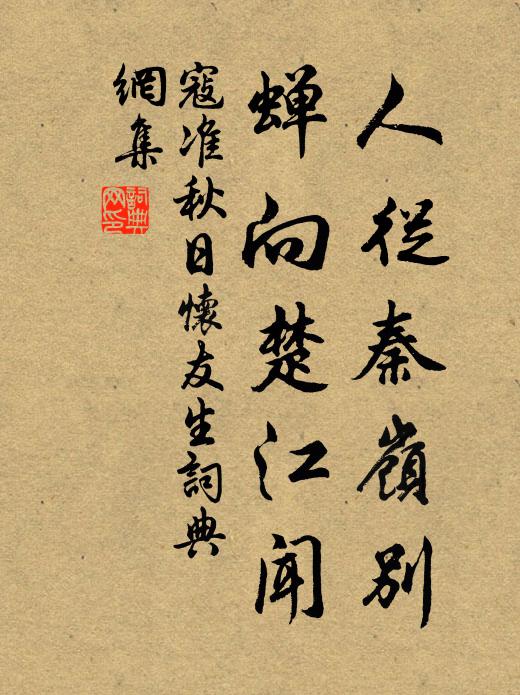 人從秦嶺別
蝉向楚江闻
寇准秋日懷友生詞典
網集
詞典网印